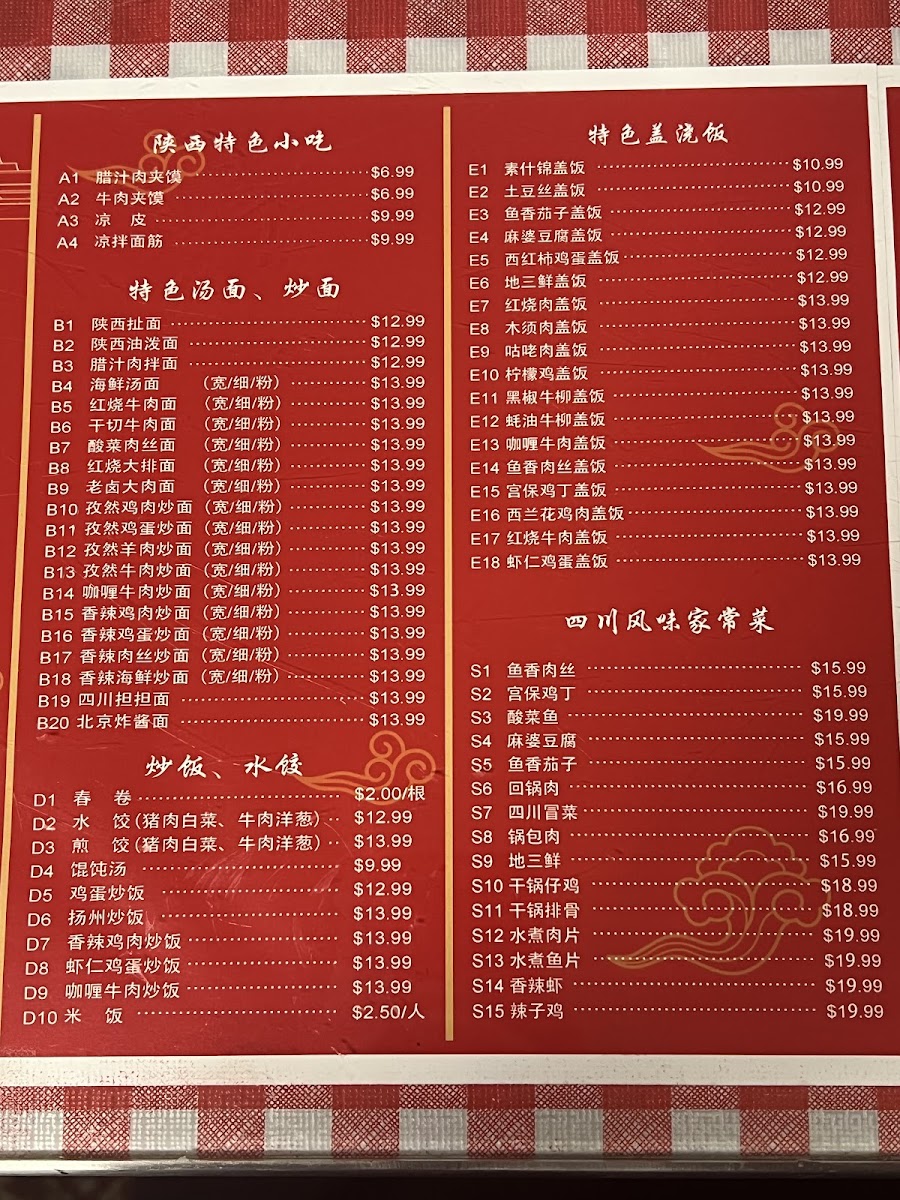 陕西特色小吃
A1 腊汁肉夹馍 $6.99
A2 牛肉夹馍 $6.99
A3 凉 皮 $9.99
A4 凉拌面筋 $9.99
特色汤面、炒面
B1 陕西扯面 $12.99
B2 陕西油泼面 $12.99
B3 腊汁肉拌面 $12.99
B4 海鲜汤面 (宽/细/粉) $13.99
B5 红烧牛肉面 (宽/细/粉) $13.99
B6 干切牛肉面 (宽/细/粉) $13.99
B7 酸菜肉丝面 (宽/细/粉) $13.99
B8 红烧大排面 (宽/细/粉) $13.99
B9 老卤大肉面 (宽/细/粉) $13.99
B10 孜然鸡肉炒面 (宽/细/粉) $13.99
B11 孜然鸡蛋炒面 (宽/细/粉) $13.99
B12 孜然羊肉炒面 (宽/细/粉) $13.99
B13 孜然牛肉炒面 (宽/细/粉) $13.99
B14 咖喱牛肉炒面 (宽/细/粉) $13.99
B15 香辣鸡肉炒面 (宽/细/粉) $13.99
B16 香辣鸡蛋炒面 (宽/细/粉) $13.99
B17 香辣肉丝炒面 (宽/细/粉) $13.99
B18 香辣海鲜炒面 (宽/细/粉) $13.99
B19 四川担担面 $13.99
B20 北京炸酱面 $13.99
炒饭、水饺
D1 春 卷 $2.00/根
D2 水 饺(猪肉白菜、牛肉洋葱) $12.99
D3 煎 饺(猪肉白菜、牛肉洋葱) $13.99
D4 馄饨汤 $9.99
D5 鸡蛋炒饭 $12.99
D6 扬州炒饭 $13.99
D7 香辣鸡肉炒饭 $13.99
D8 虾仁鸡蛋炒饭 $13.99
D9 咖喱牛肉炒饭 $13.99
D10 米 饭 $2.50/人
特色盖浇饭
E1 素什锦盖饭 $10.99
E2 土豆丝盖饭 $10.99
E3 鱼香茄子盖饭 $12.99
E4 麻婆豆腐盖饭 $12.99
E5 西红柿鸡蛋盖饭 $12.99
E6 地三鲜盖饭 $12.99
E7 红烧肉盖饭 $13.99
E8 木须肉盖饭 $13.99
E9 咕咾肉盖饭 $13.99
E10 柠檬鸡盖饭 $13.99
E11 黑椒牛柳盖饭 $13.99
E12 蚝油牛柳盖饭 $13.99
E13 咖喱牛肉盖饭 $13.99
E14 鱼香肉丝盖饭 $13.99
E15 宫保鸡丁盖饭 $13.99
E16 西兰花鸡肉盖饭 $13.99
E17 红烧牛肉盖饭 $13.99
E18 虾仁鸡蛋盖饭 $13.99
四川风味家常菜
S1 鱼香肉丝 $15.99
S2 宫保鸡丁 $15.99
S3 酸菜鱼 $19.99
S4 麻婆豆腐 $15.99
S5 鱼香茄子 $15.99
S6 回锅肉 $16.99
S7 四川冒菜 $19.99
S8 锅包肉 $16.99
S9 地三鲜 $15.99
S10 干锅仔鸡 $18.99
S11 干锅排骨 $18.99
S12 水煮肉片 $19.99
S13 水煮鱼片 $19.99
S14 香辣虾 $19.99
S15 辣子鸡 $19.99